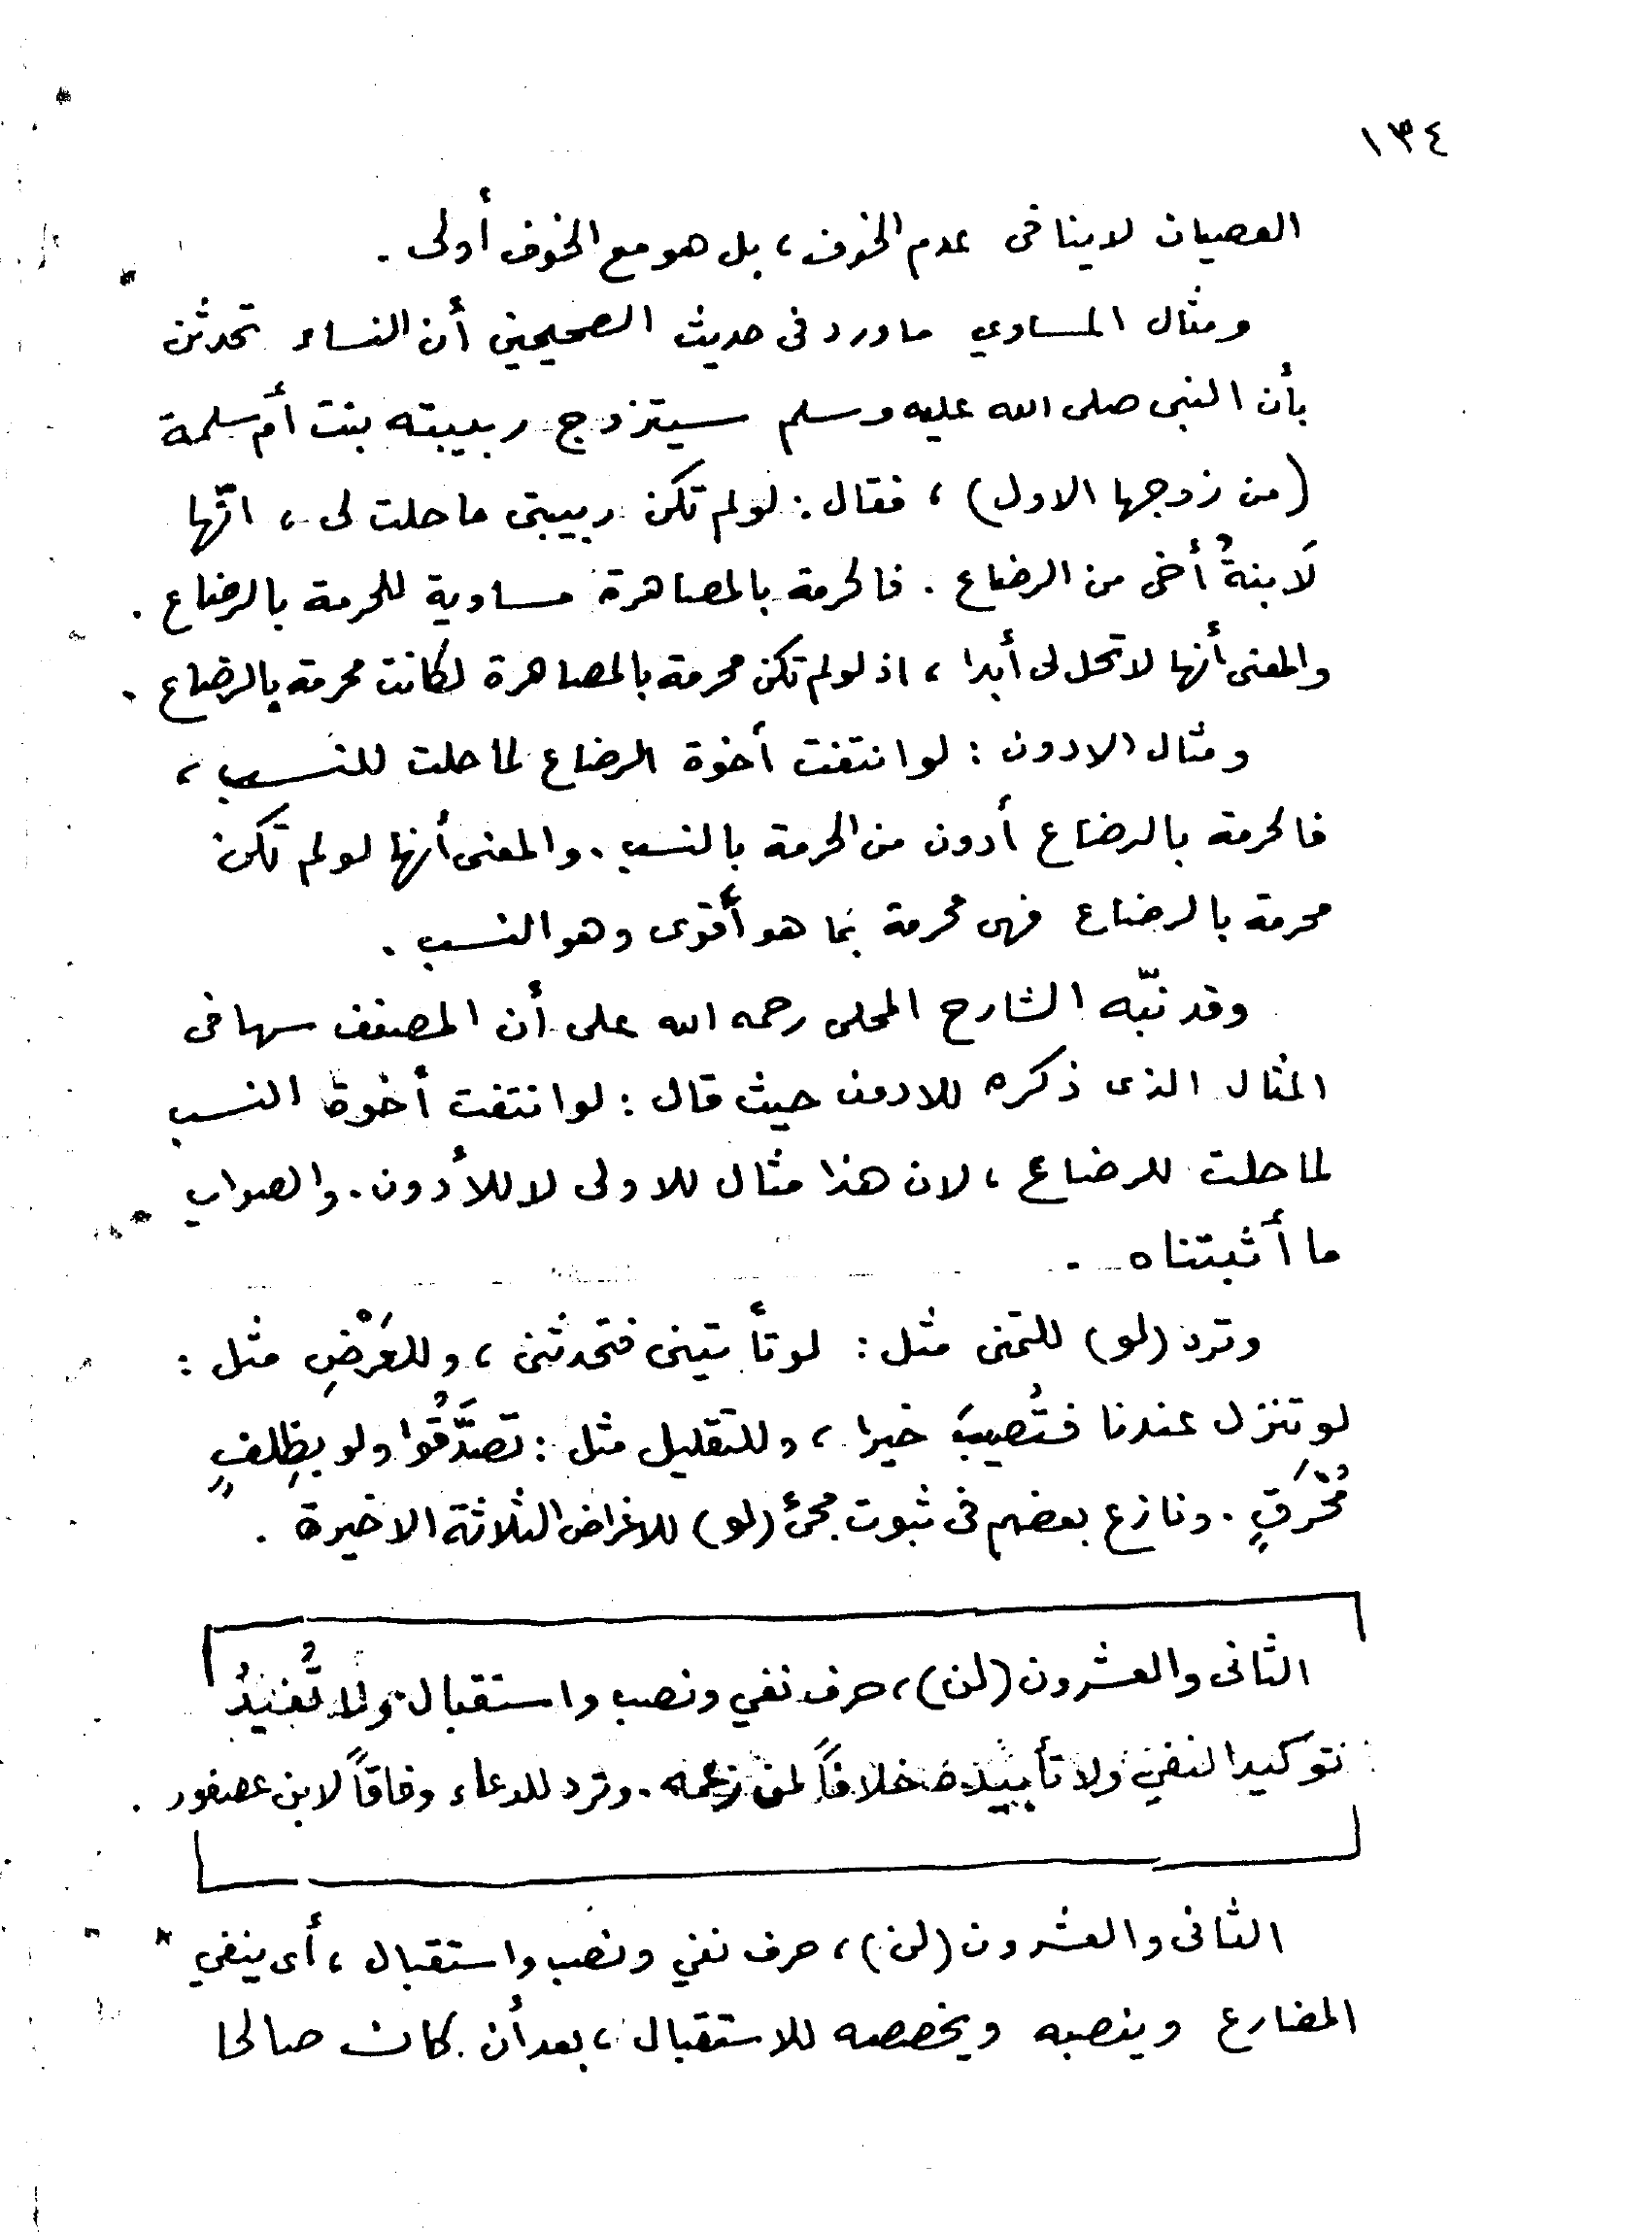 ١٣٤
العصيان لاينافى عدم الخوف، بل هو مع الخوف أولى .
ومثال المساوي ماورد فى حديث الصحيحين أن النساء تحدثن
بأن النبى صلى الله عليه وسلم سيتزوج ربيبته بنت أم سلمة
(من زوجها الاول) ، فقال : لولم تكن ربيبتى ماحلت لى ، انّها
لَابنةُ أخى من الرضاع . فالحرمة بالمصاهرة مساوية للحرمة بالرضاع .
والمعنى أنها لاتحل لى أبدا ، اذ لولم تكن محرمة بالمصاهرة لكانت محرمة بالرضاع .
ومثال الادون : لوانتفت أخوة الرضاع لماحلت للنسب ،
فالحرمة بالرضاع أدون من الحرمة بالنسب . والمعنى أنها لولم تكن
محرمة بالرضاع فهى محرمة بما هو أقوى وهو النسب .
وقد نبّه الشارح المحلى رحمه الله على أن المصنف سها فى
المثال الذى ذكره للادون حيث قال : لوانتفت أخوة النسب
لما حلت للرضاع ، لان هذا مثال للاولى لا للأدون . والصواب
ما أثبتناه .
وترد (لو) للتمنى مثل : لوتأتينى فتحدثنى ، وللعَرْضِ مثل :
لوتنزل عندنا فتُصيبَ خيرا ، وللتقليل مثل : تصدَّقُوا ولو بظِلفٍ
مُحَّرَقٍ . ونازع بعضهم فى ثبوت مجئ (لو) للاغراض الثلاثة الاخيرة .
الثانى والعشرون (لن) ، حرف نفي ونصب واستقبال ولا تُفيدُ
توكيد النفي ولا تأبيده خلافاً لمن زعمه . وترد للدعاء وفاقاً لابن عصفور .
الثانى والعشرون (لن) ، حرف نفي ونصب واستقبال ، أى ينفي
المضارع وينصبه ويخصصه للاستقبال ، بعد أن كان صالحا